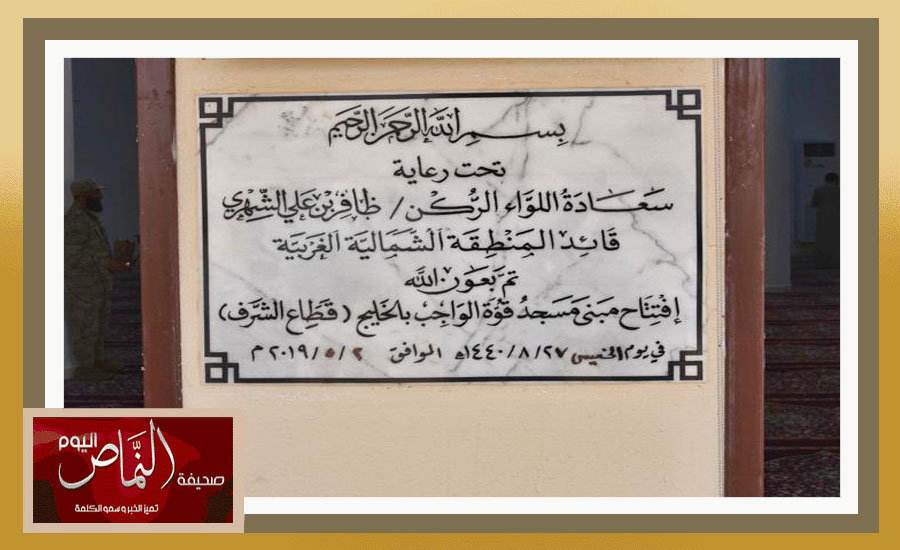 بِسْمِ اللهِ الرَّحْمَنِ الرَّحِيمِ
تحت رعاية
سَعَادَةُ اللوَاء الرُّكْن / ظافر بن علي الشّهري
قَائِد المَنْطِقَة الشَّمَاليَّة الغَربيَّة
تمّ بعَون الله
إفتِتَاح مَبنى مَسجدُ قوُة الوَاجبْ بالخَليج ( قَطاع الشّرَف )
في يوم الخميس ١٤٤٠/٨/٢٧هـ الموافق ٢٠١٩/٥/٢ م
صحيفة النّماص اليوم
تميز الخبر و سمو الكلمة